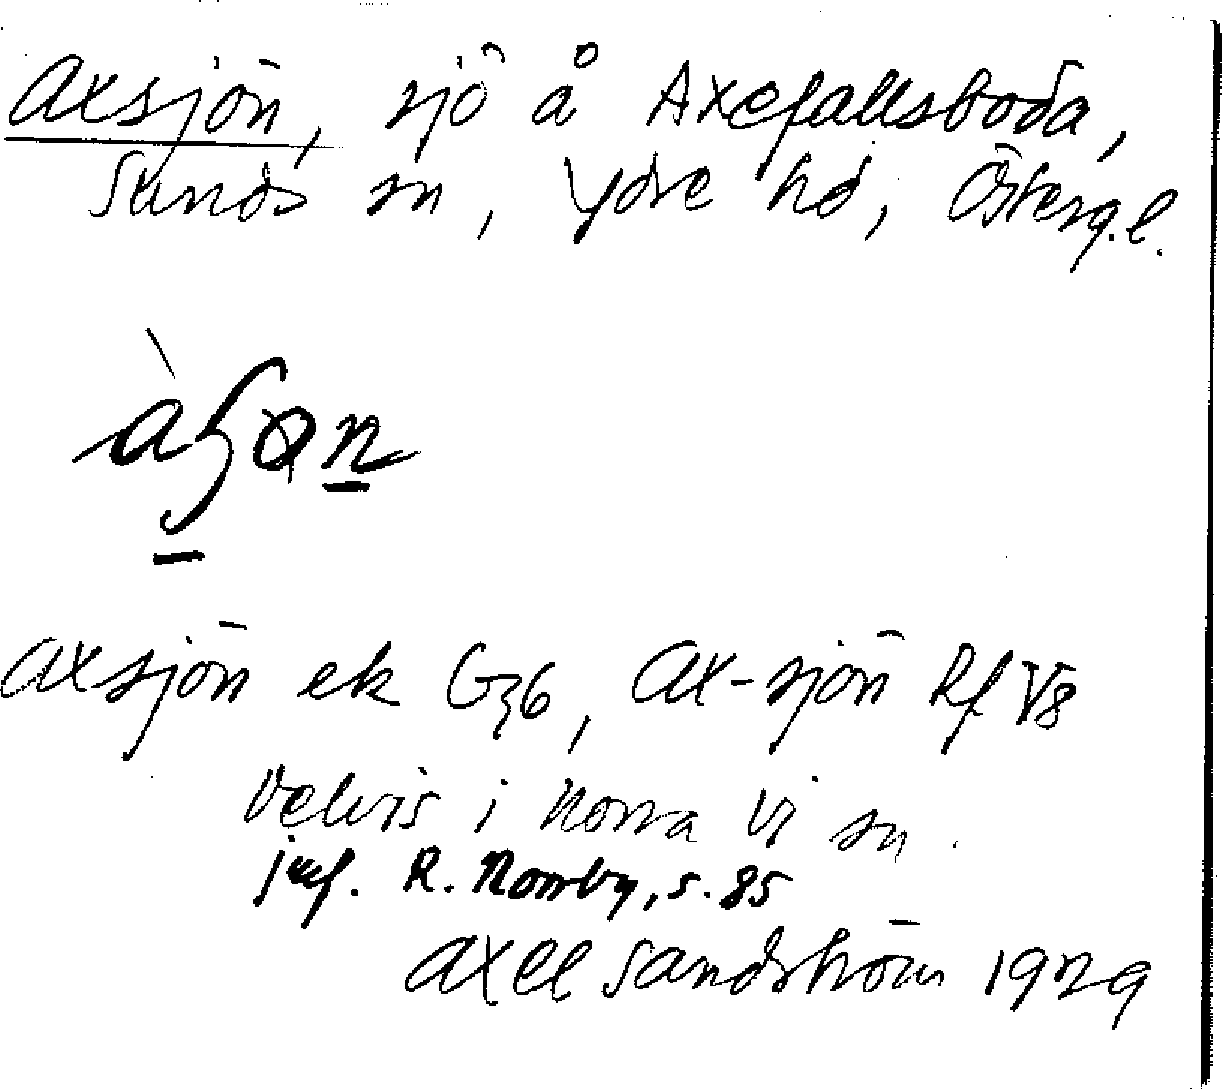 Axsjön, sjö å Axefallsboda,
Sunds sn, Ydre hd, Östergl.
Axsjön ek G36, Ax-sjön Rf V8
Delvis i Norra Vi sn.
jmf. R. Norrby, s. 85
Axel Sandström 1929